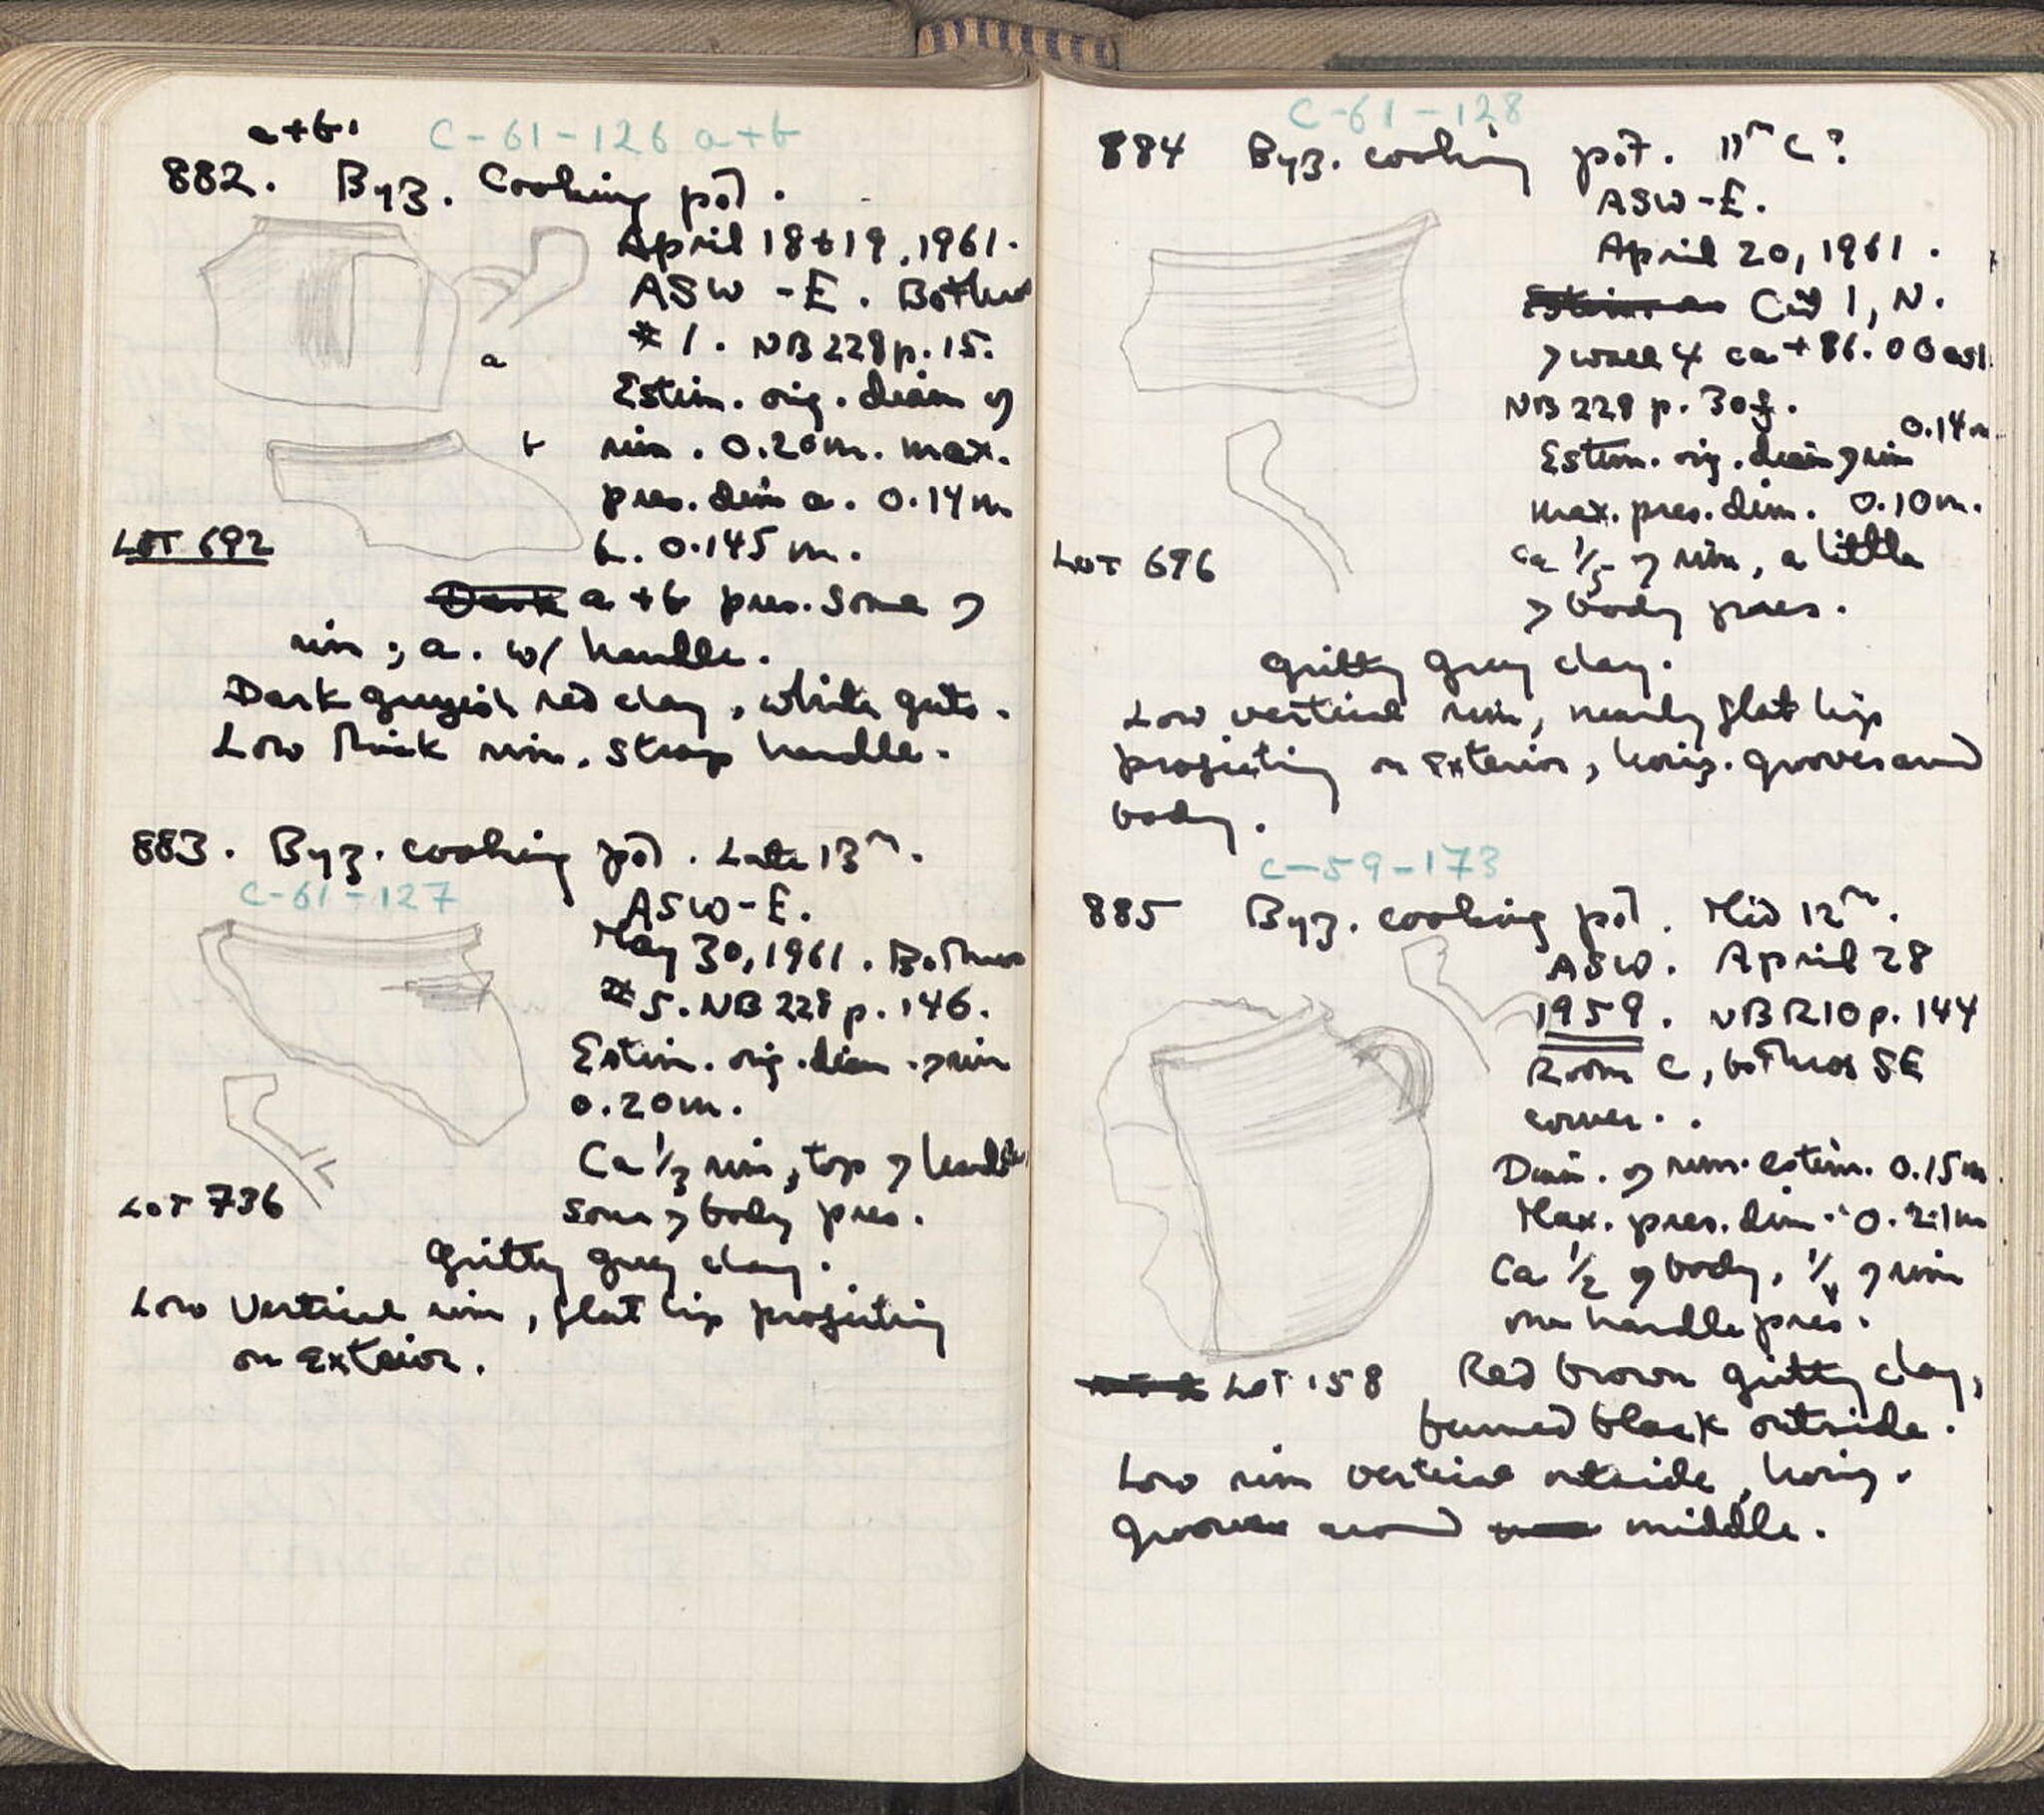 a+b.
C-61-126 a+b
882. Byz. Cooking pot.
April 18+19, 1961.
ASW-E. Bothros
#1. NB 228 p. 15.
a
Estim. orig. diam of
b
rim. 0.20m. max.
pres. dim a. 0.14m
LOT 692
b. 0.145m.
a+b pres. some of
rim; a. w/ handle.
Dark greyish red clay, white grits.
Low thick rim, strap handle.
883. Byz. cooking pot. Late 13th.
C-61-127
ASW-E.
May 30, 1961. Bothros
#5. NB 228 p. 146.
Estim. orig. diam. of rim
0.20m.
Ca 1/3 rim, top of handle
LOT 736
some of body pres.
Gritty grey clay.
Low vertical rim, flat lip projecting
on exterior.
C-61-128
884 Byz. cooking pot. 11th C?
ASW-E.
April 20, 1961.
1, N.
of wall 4 ca +86.00 asl.
NB 228 p. 30f.
0.14m.
Estim. orig. diam of rim
max. pres. dim. 0.10m.
LOT 696
ca 1/5 of rim, a little
of body pres.
Gritty grey clay.
Low vertical rim, nearly flat lip
projecting on exterior, horiz. grooves around
body.
C-59-173
885 Byz. cooking pot. Mid 12th.
ASW. April 28
1959. NB R10 p. 144
Room C, bothros SE
corner.
Diam. of rim. estim. 0.15m
Max. pres. dim. 0.21m
Ca 1/2 of body, 1/4 of rim
one handle pres.
LOT 158 Red brown gritty clay,
burned black outside.
Low rim vertical outside, horiz.
grooves around middle.